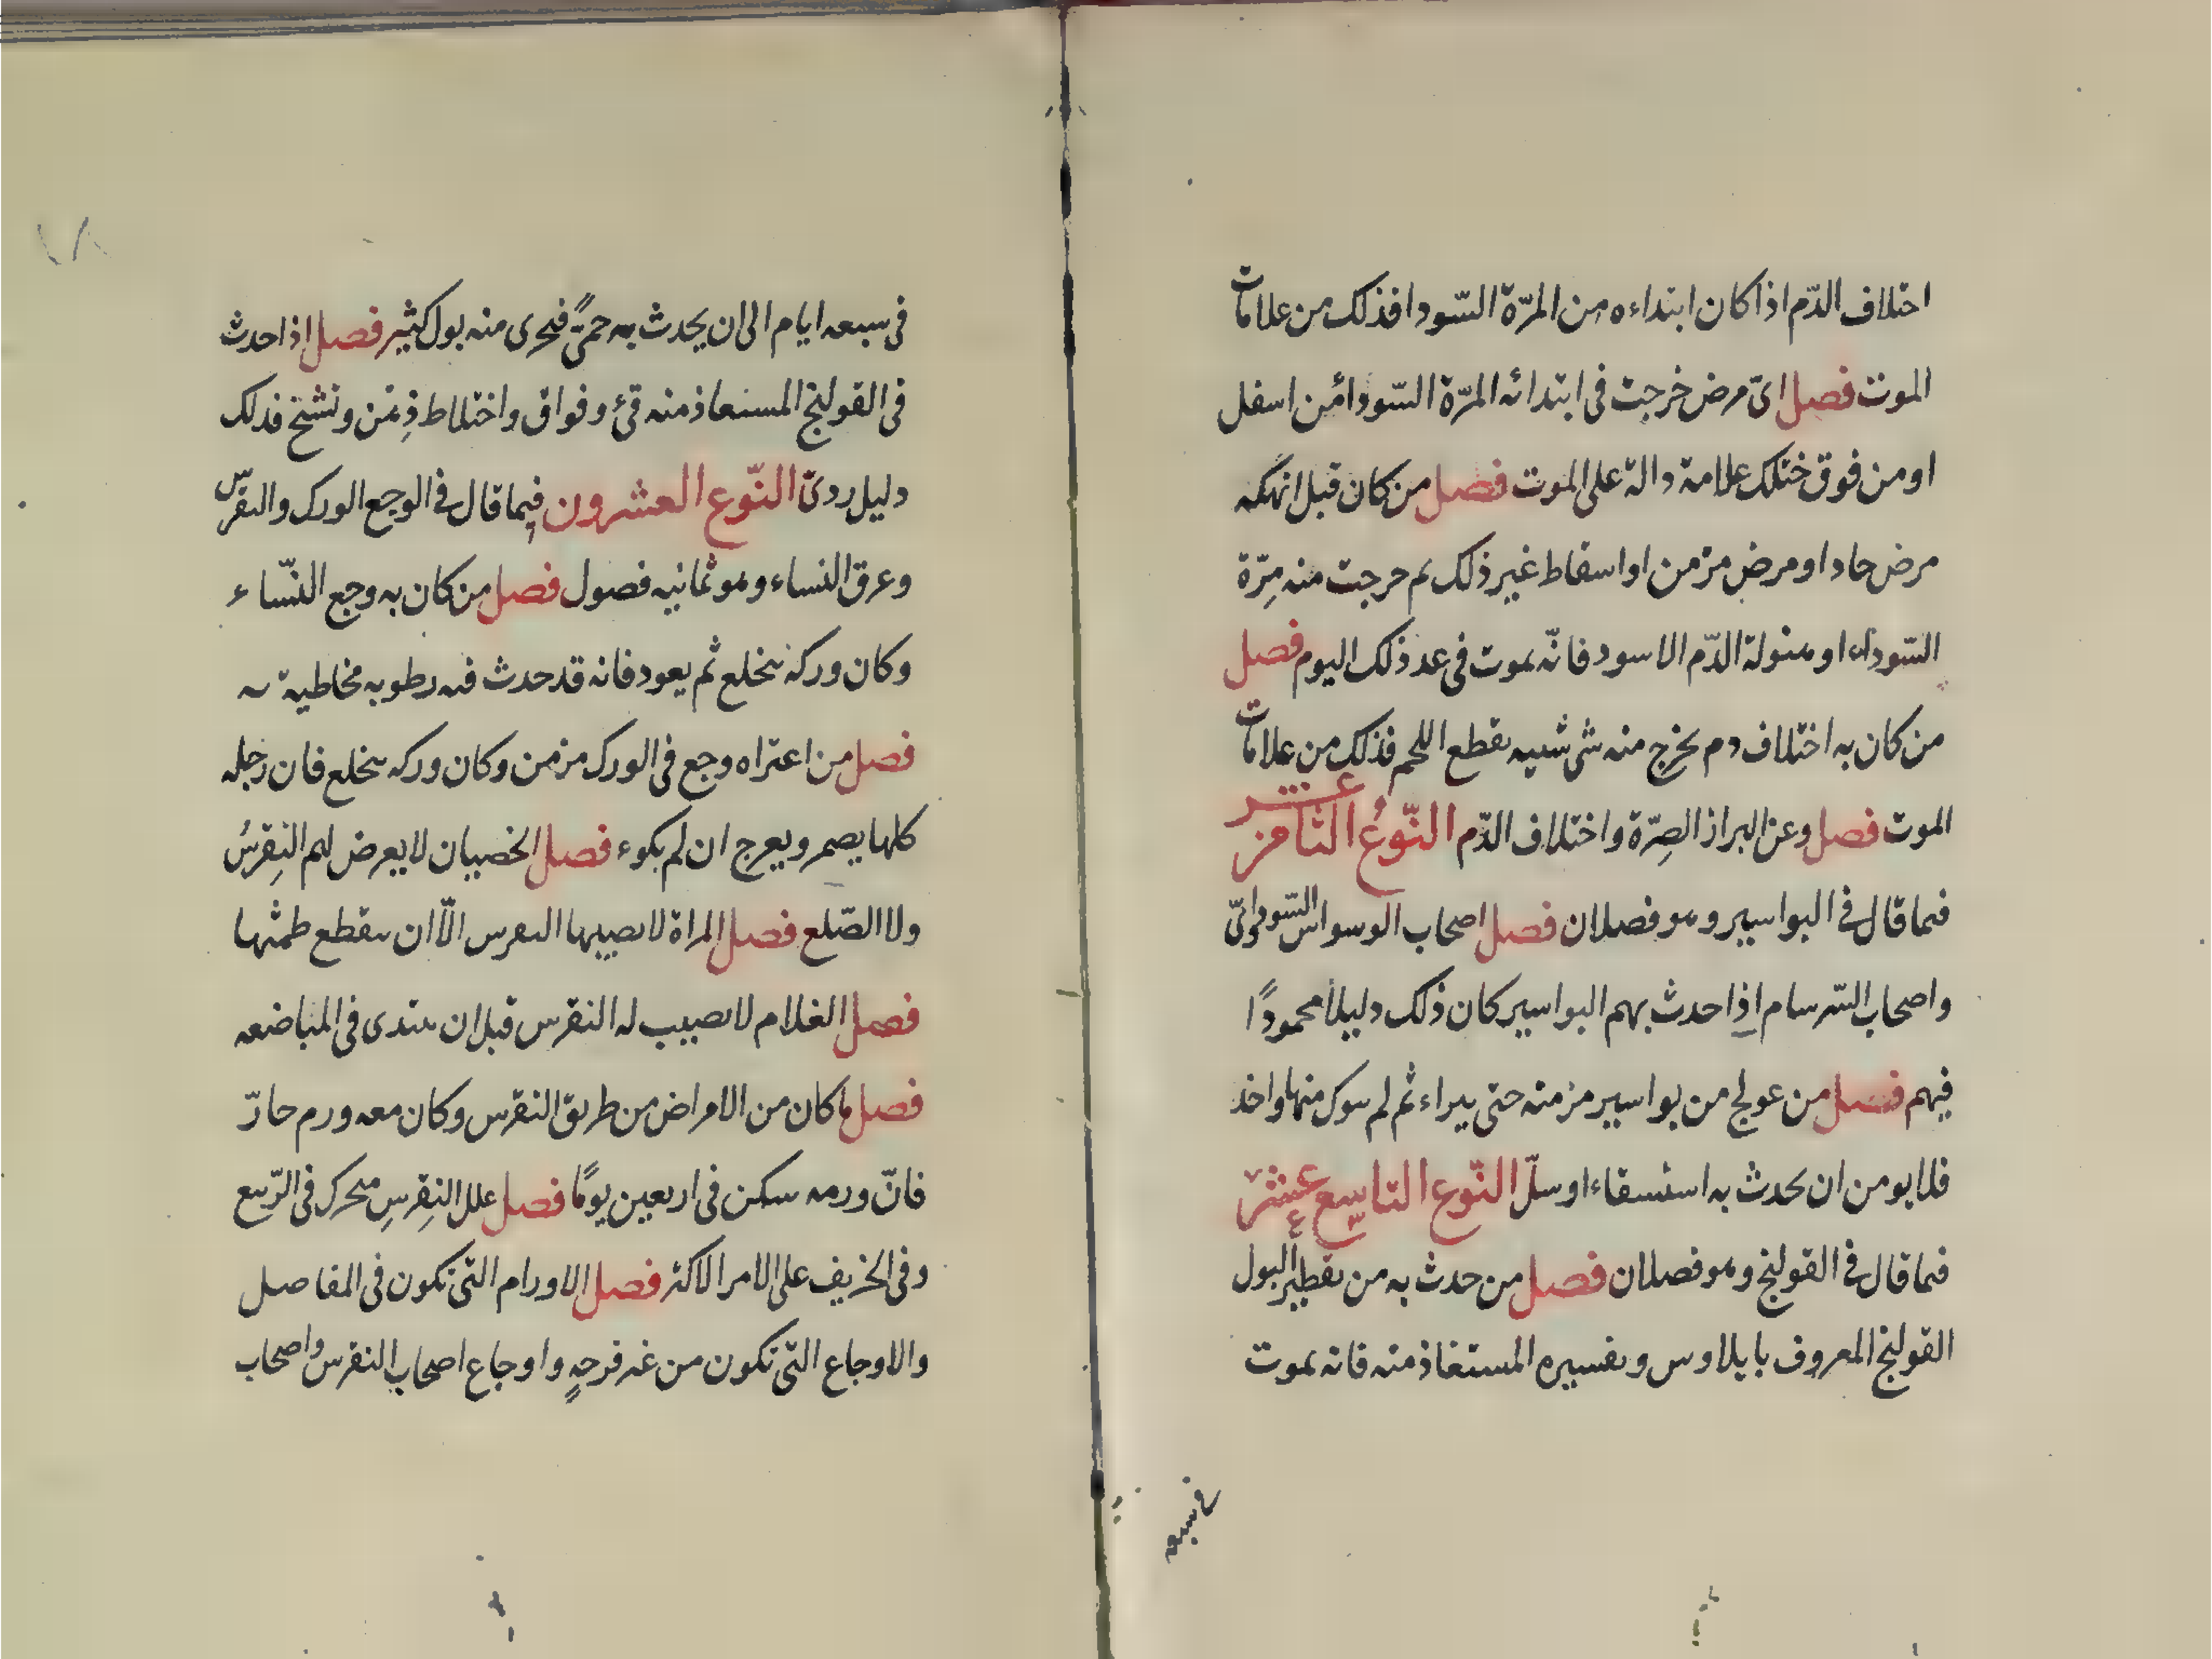 اختلاف الدّم اذا كان ابتداءه من المرّة السّودا فذلك من علامات
الموت فصل اىّ مرض خرجت فى ابتدائه المرّة السّودا من اسفل
او من فوق فتلك علامة دالة على الموت فصل من كان قبل انهكه
مرض حاد او مرض مزمن او اسقاط غير ذلك ثم خرجت منه مِرّة
السّوداء او بمنزلة الدّم الاسود فانّه يموت فى غد ذلك اليوم فصل
من كان به اختلاف دم يخرج منه شى شبيه بقطع اللحم فذلك من علامات
الموت فصل وعن البراز الصِرّة واختلاف الدّم النّوع الثامن عشر
فيما قال فى البواسير وهو فصلان فصل اصحاب الوسواس السّوداوىّ
واصحاب السّرسام اذا حدث بهم البواسير كان ذلك دليلا محمودًا
فيهم فصل من عولج من بواسير مزمنه حتى يبراء ثم لم يترك منها واحد
فلا يومن ان يحدث به استسقاء او سلّ النّوع التاسع عشر
فيما قال فى القولنج وهو فصلان فصل من حدث به من تقطير البول
القولنج المعروف بايلاوس وتفسيره المستعاذ منه فانه يموت
فى سبعه
١٨
فى سبعه ايام الى ان يحدث به حمىً فيجرى منه بول كثير فصل اذا حدث
فى القولنج المستعاذ منه قىء وفواق واختلاط ذِهن وتشنج فذلك
دليل ردىّ النّوع العشرون فيما قال فى الوجع الورك والنقرس
وعرق النساء وهو ثمانيه فصول فصل من كان به وجع النّساء
وكان وركه ينخلع ثم يعود فانه قد حدث فيه رطوبه مخاطية
فصل من اعتراه وجع فى الورك مزمن وكان وركه ينخلع فان رجله
كلها يضمر ويعرج ان لم يكوء فصل الخصيان لا يعرض لهم النِقرسُ
ولا الصّلع فصل المراة لا يصيبها النقرس الّا ان ينقطع طمثها
فصل الغلام لا يصيب له النقرس قبل ان يبتدى فى المباضعه
فصل ما كان من الامراض من طريق النقرس وكان معه ورم حارّ
فانّ ورمه يسكن فى اربعين يومًا فصل علل النِقرسِ يتحرك فى الرّبيع
وفى الخريف على الامر الاكثر فصل الاورام التى تكون فى المفاصل
والاوجاع التى تكون من غير قرحهٍ واوجاع اصحاب النقرس واصحاب